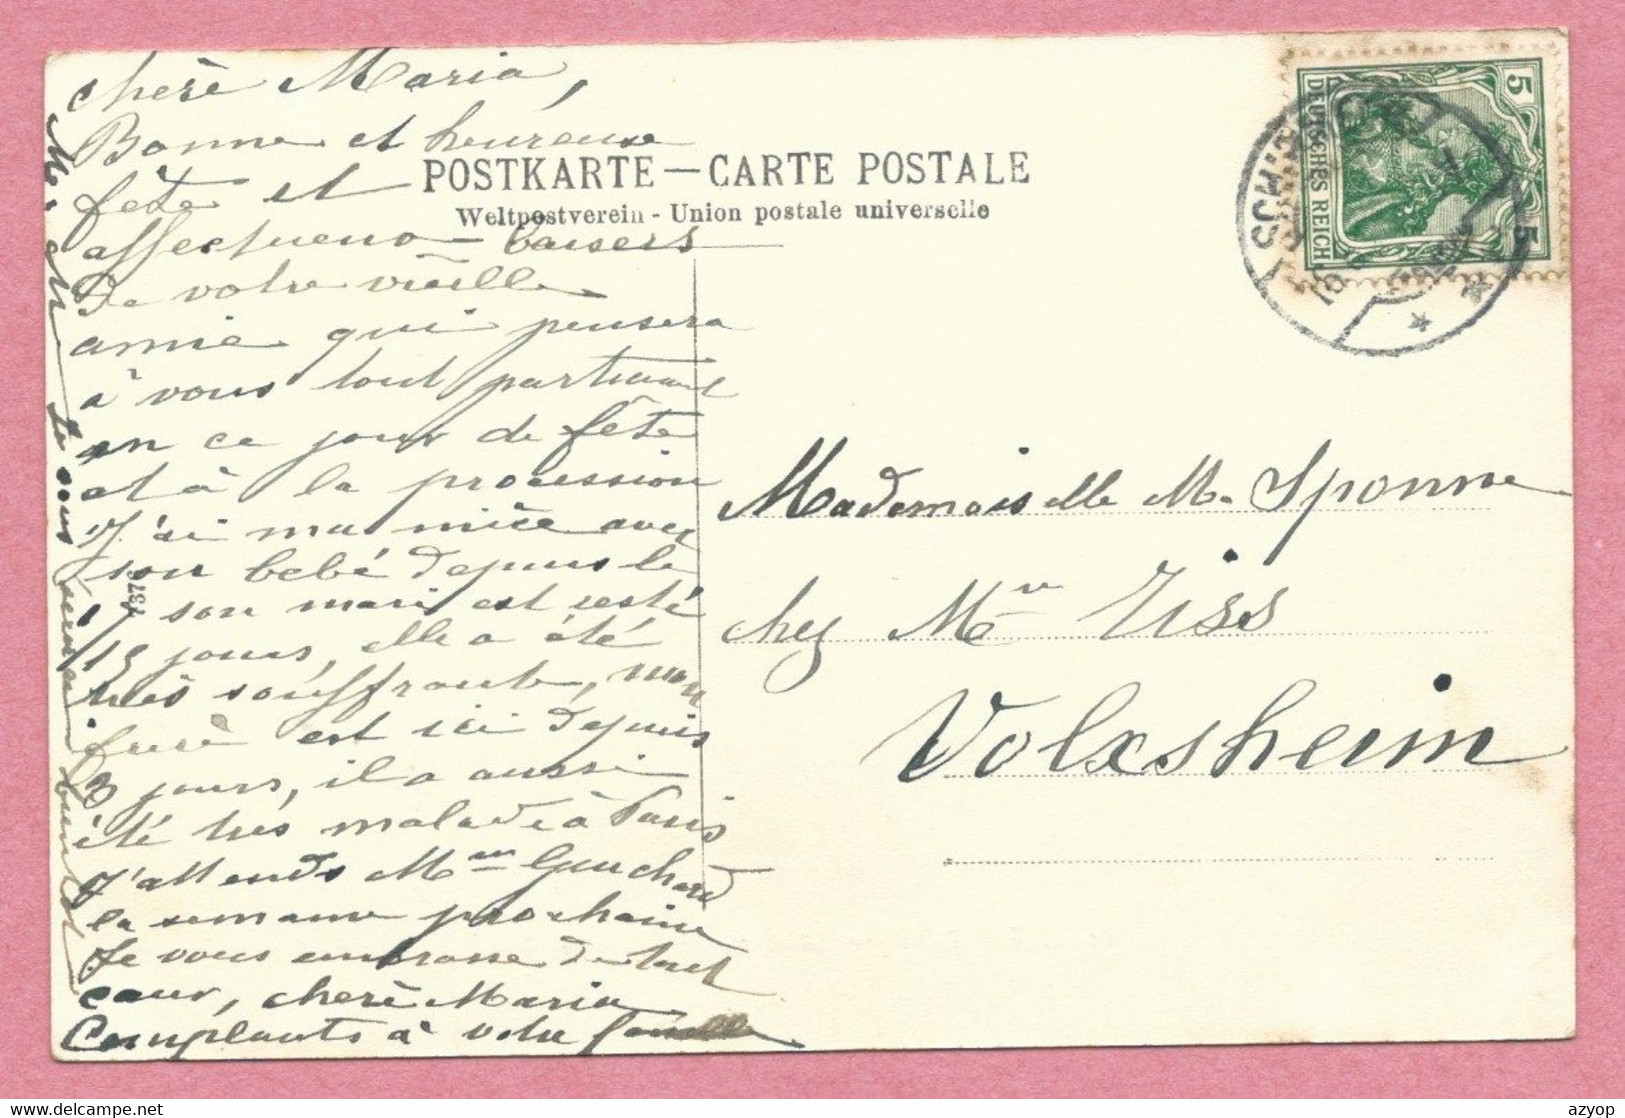 chère Maria,
Bonne et heureuse
fête et
affectueux baisers
De votre vieille
amie qui pensera
à vous tout particul
en ce jour de fête
et à la procession
J'ai ma nièce avec
son bébé depuis le
17 son mari est resté
15 jours, elle a été
très souffrante, mon
frère est ici depuis
3 jours, il a aussi
été très malade à Paris
J'attends Mme Guichard
la semaine prochaine
Je vous embrasse de tout
cœur, chère Maria
Compliments à votre famille
POSTKARTE — CARTE POSTALE
Weltpostverein - Union postale universelle
7376
5 5
DEUTSCHES REICH
Mademoiselle Ma Sponne
chez Mr Ziss
Volxsheim
delcampe.net
azyop